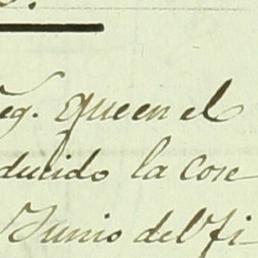 eg. que en el
ducido la cose
Junio del fi-